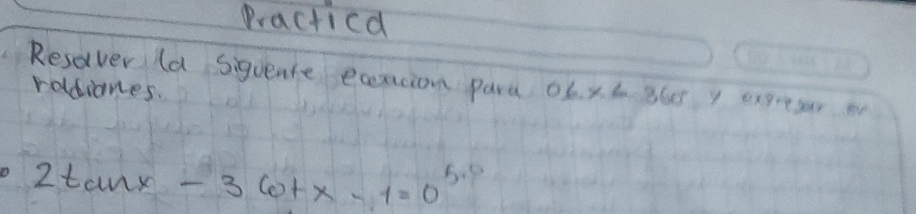 Practica
Resolver la siguente ecuacion para 0≤x≤360° y expresar en
radianes.
2tanx - 3 cotx - 1 = 0